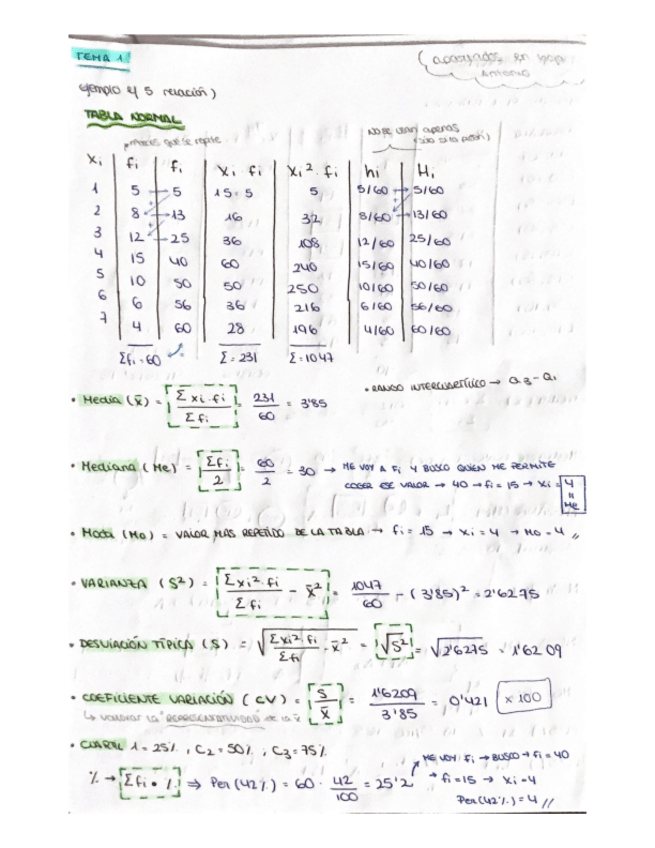 TEMA 1
(apoyados en
ejemplo ej 5 relación)
TABLA NORMAL
No se usan apenas
xi fi fi xi · fi xi² · fi hi Hi
1 5 5 1 5 = 5 5 5/60 5/60
2 8 13 16 32 8/60 13/60
3 12 25 36 108 12/60 25/60
4 15 40 60 240 15/60 40/60
5 10 50 50 250 10/60 50/60
6 6 56 36 216 6/60 56/60
7 4 60 28 196 4/60 60/60
Σfi = 60 Σ = 231 Σ = 1047
• RANGO INTERCUARTÍLICO → Q3 - Q1
• Media (x̄) = Σ xi · fi / Σ fi = 231 / 60 = 3'85
• Mediana (Me) = Σfi / 2 = 60 / 2 = 30 → ME VOY A Fi Y BUSCO QUIEN ME PERMITE
COGER ESE VALOR → 40 → fi = 15 → xi = 4 = Me
• Moda (Mo) = VALOR MAS REPETIDO DE LA TABLA → fi = 15 → xi = 4 → Mo = 4 //
• VARIANZA (S²) = Σxi² · fi / Σ fi - x̄² = 1047 / 60 - (3'85)² = 2'6275
• DESVIACIÓN TÍPICA (S) = √ Σxi² · fi / Σfi - x̄² = √S² = √2'6275 = 1'6209
• COEFICIENTE VARIACIÓN (CV) = S / x̄ = 1'6209 / 3'85 = 0'421 x 100
↳ valorar la "REPRESENTATIVIDAD" de la x̄
• CUARTIL 1 = 25%, C2 = 50%, C3 = 75%
ME VOY fi → BUSCO → fi = 40
% → Σfi · % ⇒ Per (42%) = 60 · 42 / 100 = 25'2 → fi = 15 → xi = 4
Per (42%) = 4 //